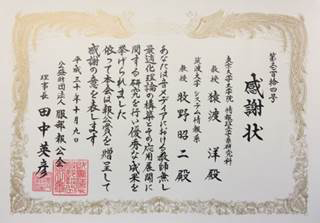 第壱百拾四号
感謝状
東京大学大学院 情報理工学系研究科
教授 猿渡 洋 殿
筑波大学 システム情報系
教授 牧野昭二殿
あなたは音メディアにおける教師無し
最適化理論の構築とその応用展開に
関する研究を行い優秀な成果を
挙げられました
依って本会は報公賞を贈呈して
感謝の意を表します
平成三十年十月九日
公益財団法人 服部報公会
理事長 田中英彦